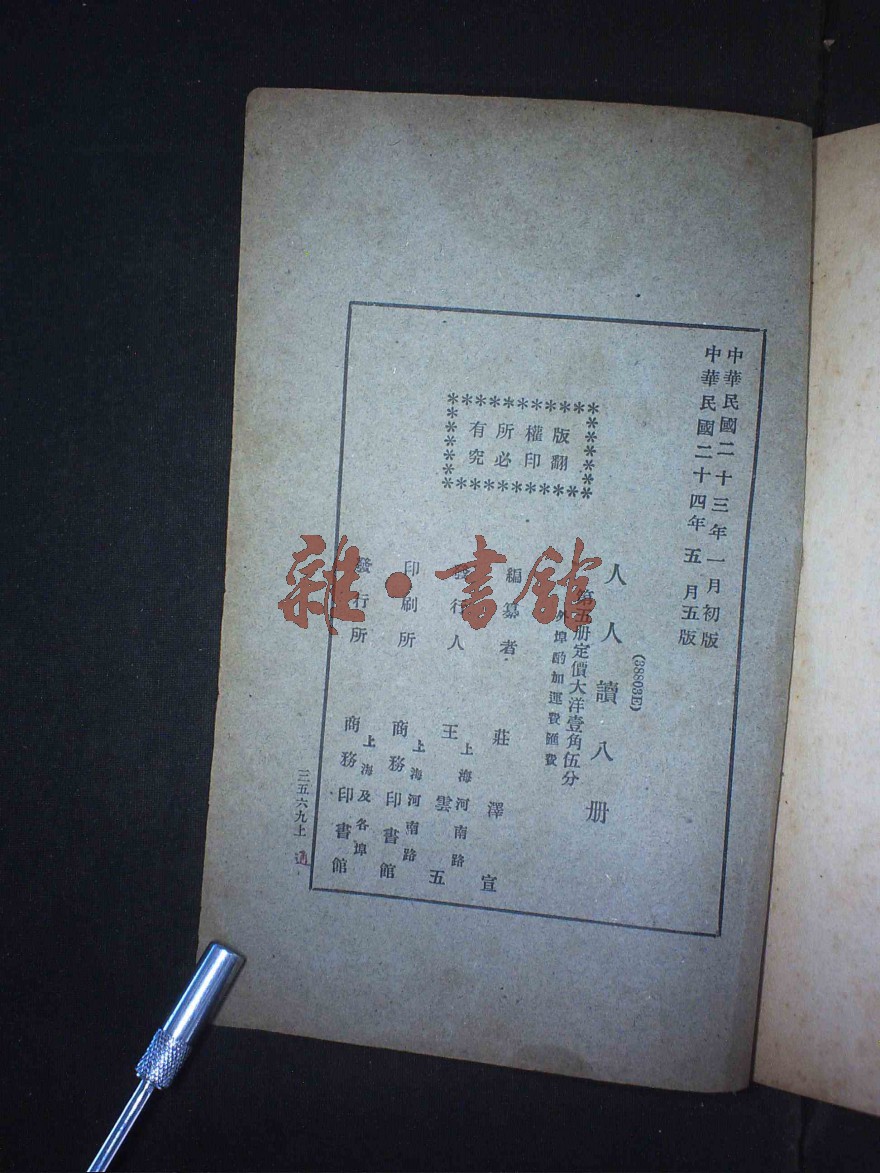 中華民國二十三年一月初版
中華民國二十四年五月五版
(38803E)
人人讀八册
第五册定價大洋壹角伍分
外埠酌加運費匯費
版權所有
翻印必究
編纂者 莊澤宣
發行人 王雲五
上海河南路
印刷所 商務印書館
上海河南路
發行所 商務印書館
上海及各埠
三五六九上
雜·書館